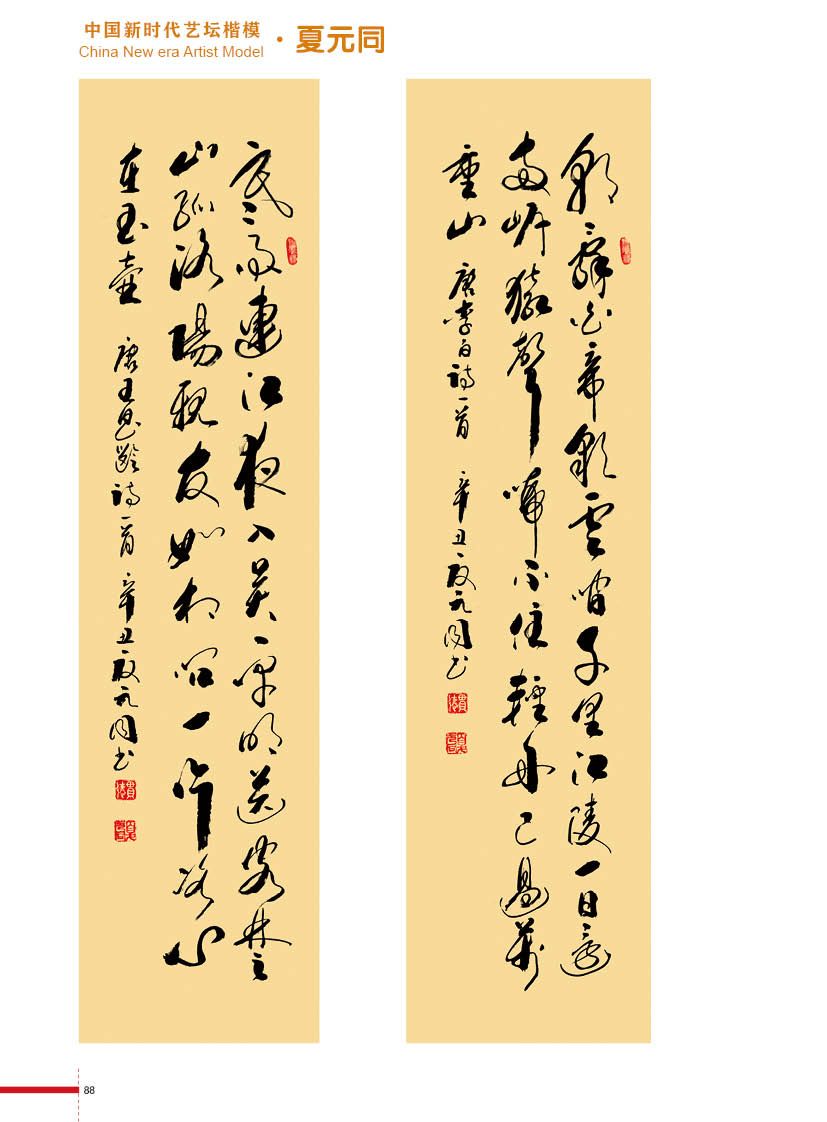 中国新时代艺坛楷模
China New era Artist Model
· 夏元同
朝辭白帝彩雲間千里江陵一日還
兩岸猿聲啼不住輕舟已過萬
重山 唐李白詩一首 辛丑夏元同书
寒雨連江夜入吴平明送客楚
山孤洛陽親友如相問一片冰心
在玉壺 唐王昌齡詩一首 辛丑夏元同书
88